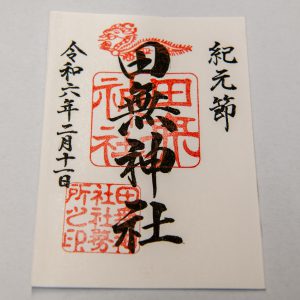 紀元節
田無神社
令和六年二月十一日
田無神社
田無神社社務所之印